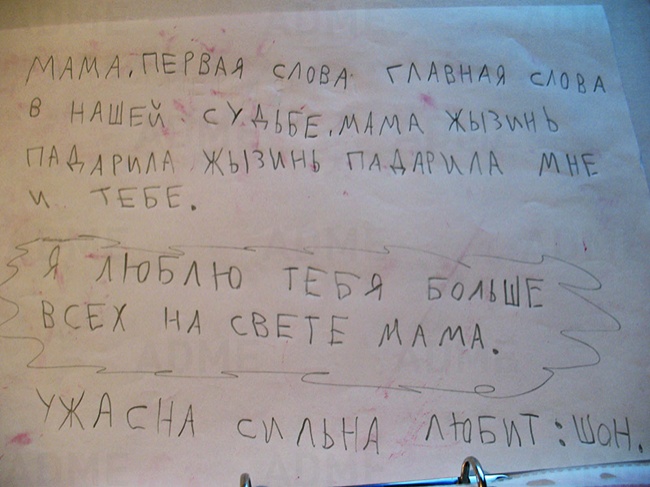 МАМА, ПЕРВАЯ СЛОВА ГЛАВНАЯ СЛОВА
В НАШЕЙ СУДЬБЕ, МАМА ЖЫЗИНЬ
ПАДАРИЛА ЖЫЗИНЬ ПАДАРИЛА МНЕ
И ТЕБЕ.
Я ЛЮБЛЮ ТЕБЯ БОЛЬШЕ
ВСЕХ НА СВЕТЕ МАМА.
УЖАСНА СИЛЬНА ЛЮБИТ: ШОН.
ADME